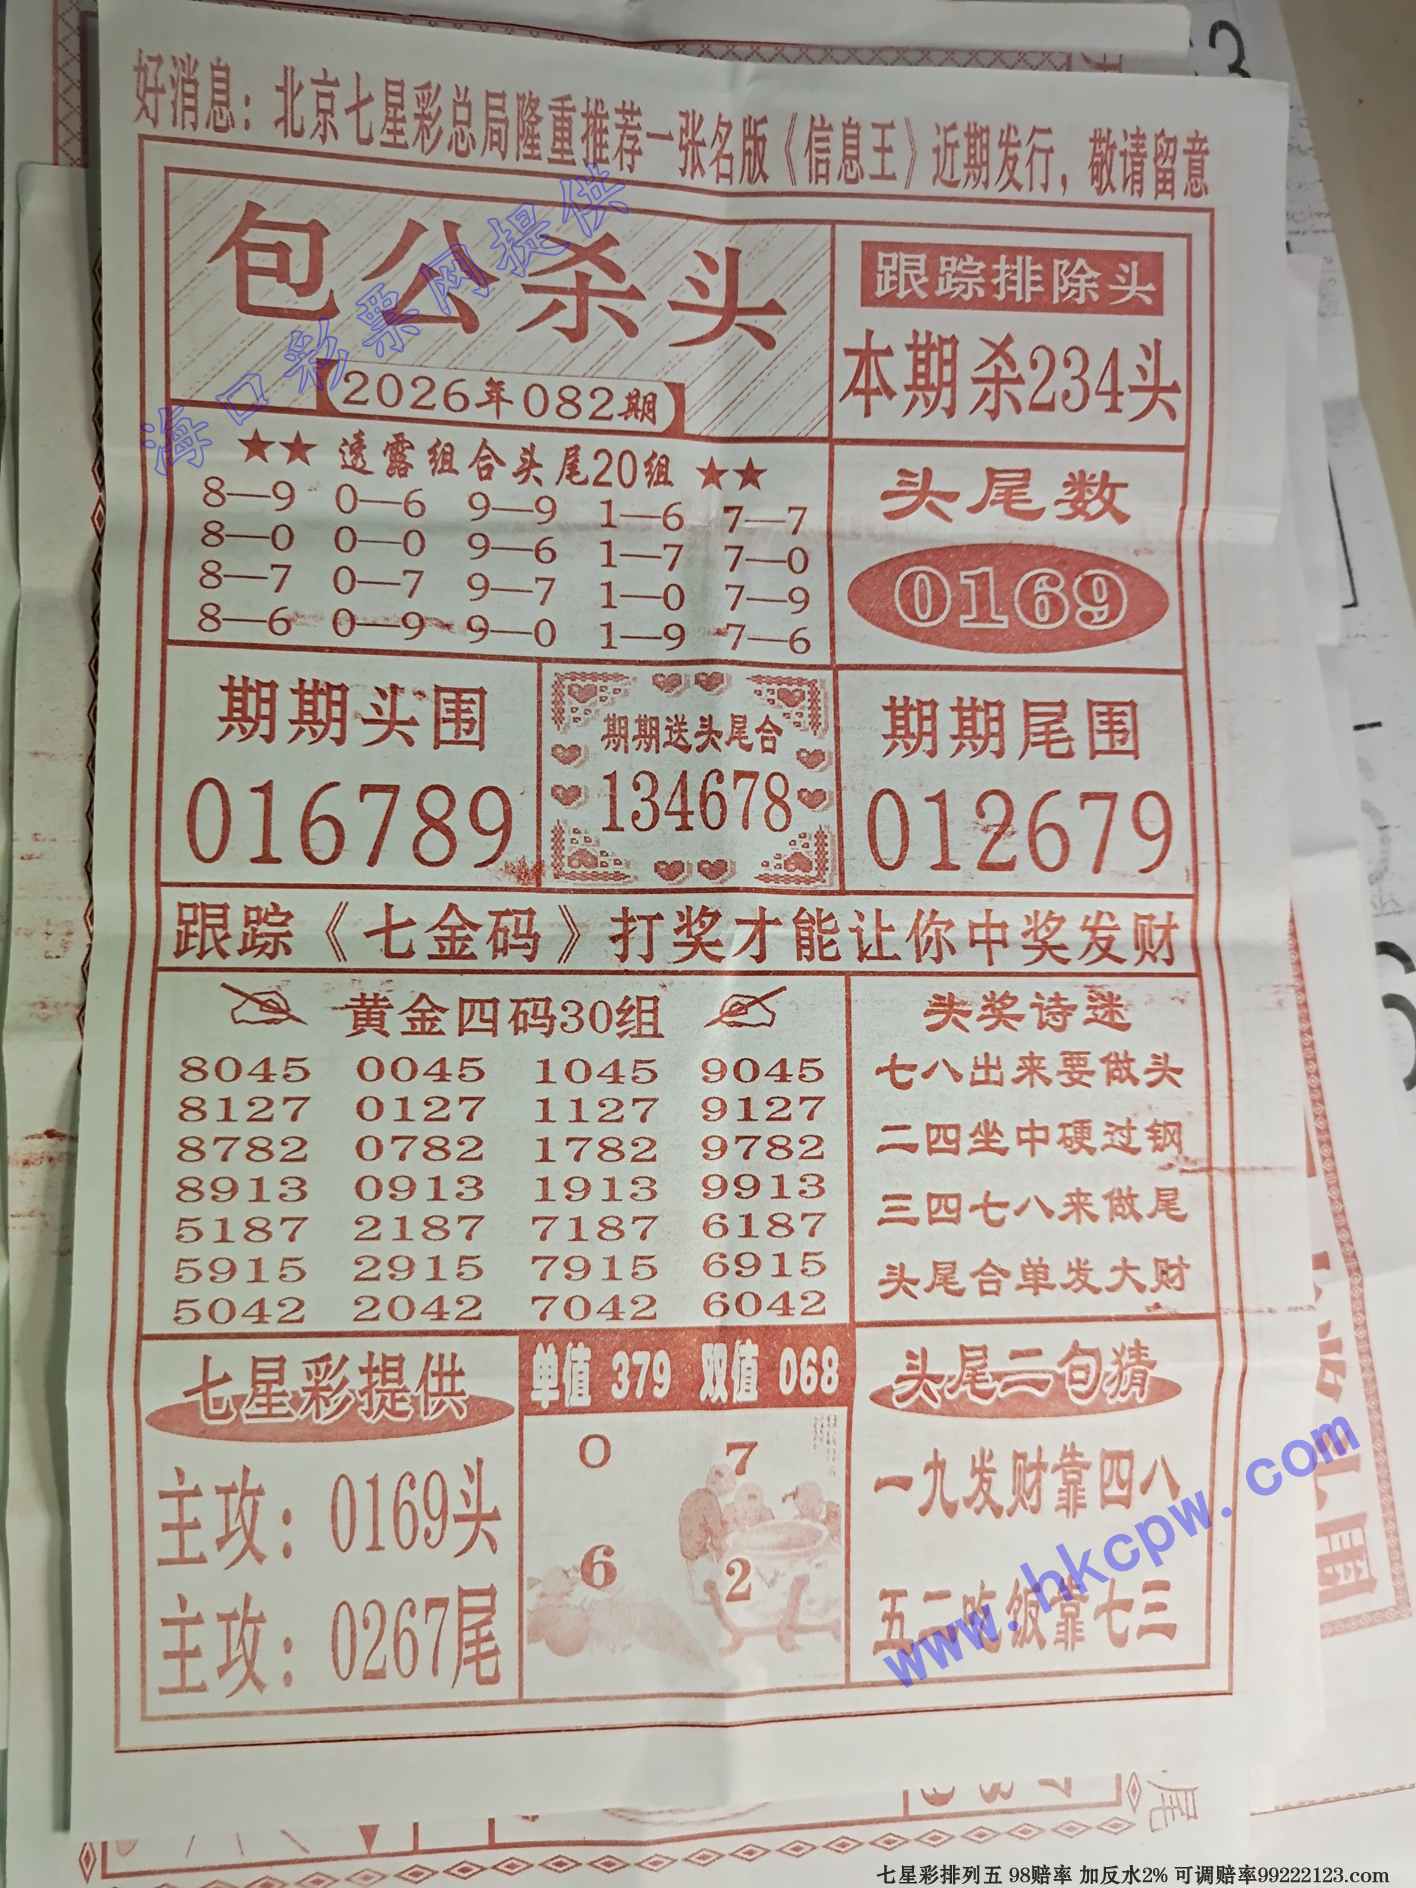 好消息：北京七星彩总局隆重推荐一张名版《信息王》近期发行，敬请留意
包公杀头
【2026年082期】
跟踪排除头
本期杀234头
★★ 透露组合头尾20组 ★★
8—9 0—6 9—9 1—6 7—7
8—0 0—0 9—6 1—7 7—0
8—7 0—7 9—7 1—0 7—9
8—6 0—9 9—0 1—9 7—6
头尾数
0169
期期头围
016789
期期送头尾合
134678
期期尾围
012679
跟踪《七金码》打奖才能让你中奖发财
黄金四码30组
8045 0045 1045 9045
8127 0127 1127 9127
8782 0782 1782 9782
8913 0913 1913 9913
5187 2187 7187 6187
5915 2915 7915 6915
5042 2042 7042 6042
头奖诗迷
七八出来要做头
二四坐中硬过钢
三四七八来做尾
头尾合单发大财
七星彩提供
主攻：0169头
主攻：0267尾
单值 379 双值 068
0 7
6 2
头尾二句猜
一九发财靠四八
五二吃饭靠七三
海口彩票网提供
www.hkcpw.com
七星彩排列五 98赔率 加反水2% 可调赔率99222123.com